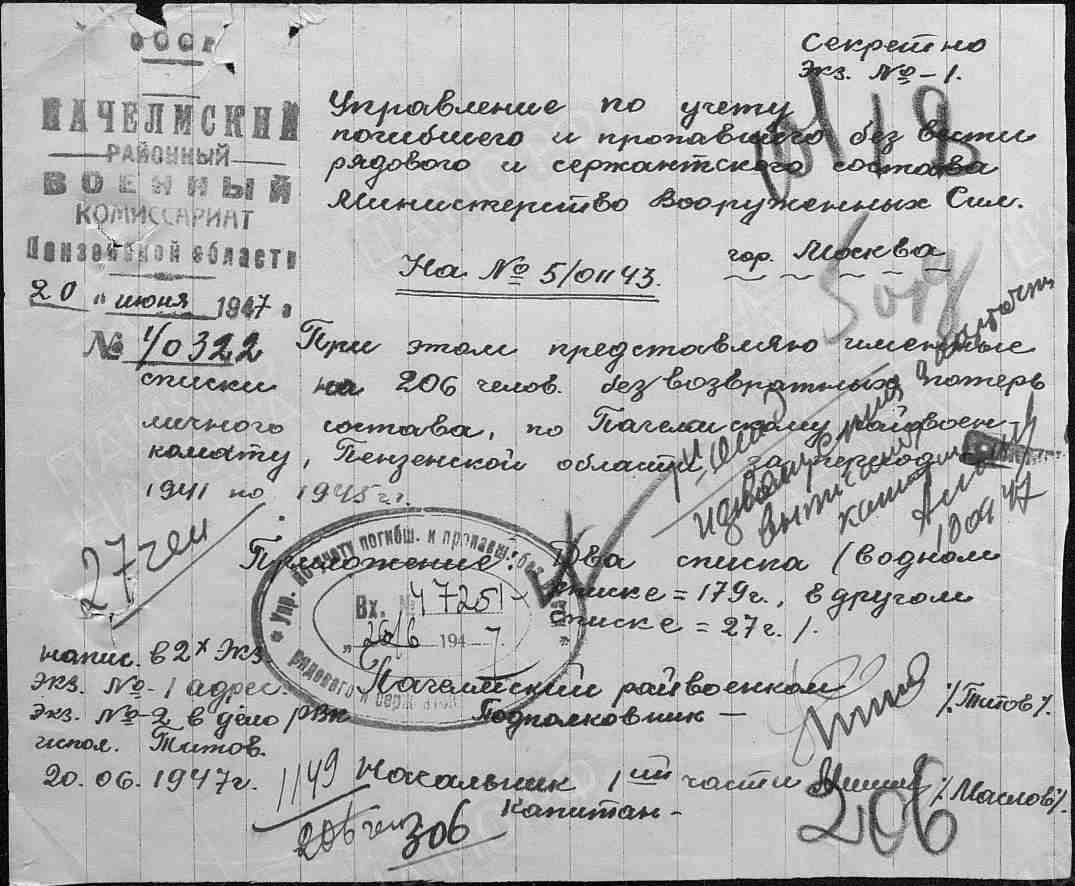 СССР
ПАЧЕЛМСКИЙ
РАЙОННЫЙ
ВОЕННЫЙ
КОМИССАРИАТ
Пензенской области
20 " июня 1947 г
№ 1/0322
Секретно
Экз. № - 1.
Управление по учету
погибшего и пропавшего без вести
рядового и сержантского состава
Министерство Вооруженных Сил.
гор. Москва
На № 5/01143.
При этом представляю именные
списки на 206 челов. безвозвратных потерь
личного состава, по Пачелмскому райвоен-
комату, Пензенской области, за период
1941 по 1945 г.
27 чел
Приложение: Два списка (в одном
списке = 179 г., в другом
списке = 27 г. /.
Упр. по учету погибш. и пропавш. без
рядового и сержант.
Вх. № 47251
"26/6 1947
напис. в 2х экз.
экз. № - 1 адрес.
экз. № - 2 в дело РВК
испол. Титов.
20.06.1947 г.
Пачелмский райвоенком
Подполковник - /Титов/.
1149
Начальник 1ой части /Маслов/.
Капитан -
206 чел
306
206